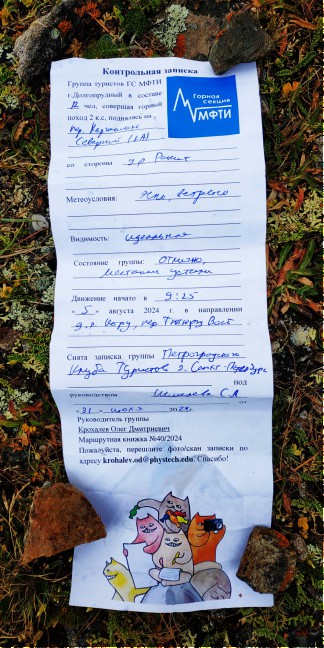 Контрольная записка
Группа туристов ГС МФТИ
г.Долгопрудный в составе
12 чел, совершая горный
поход 2 к.с, поднялась на
пер.
Северный (1А)
Горная
секция
МФТИ
со стороны д.р.
Метеоусловия: Ясно, ветрено
Видимость: идеальная
Состояние группы: Отлично,
местами устали
Движение начато в 9:25
«5» августа 2024 г. в направлении
д.р. пер Вост
Снята записка группы Петроградского
Клуба Туристов г. Санкт-Петербург
под
руководством С.А.
от
«31» июля 2024г.
Руководитель группы
Крохалев Олег Дмитриевич
Маршрутная книжка №40/2024
Пожалуйста, перешлите фото/скан записки по
адресу krohalev.od@phystech.edu. Спасибо!